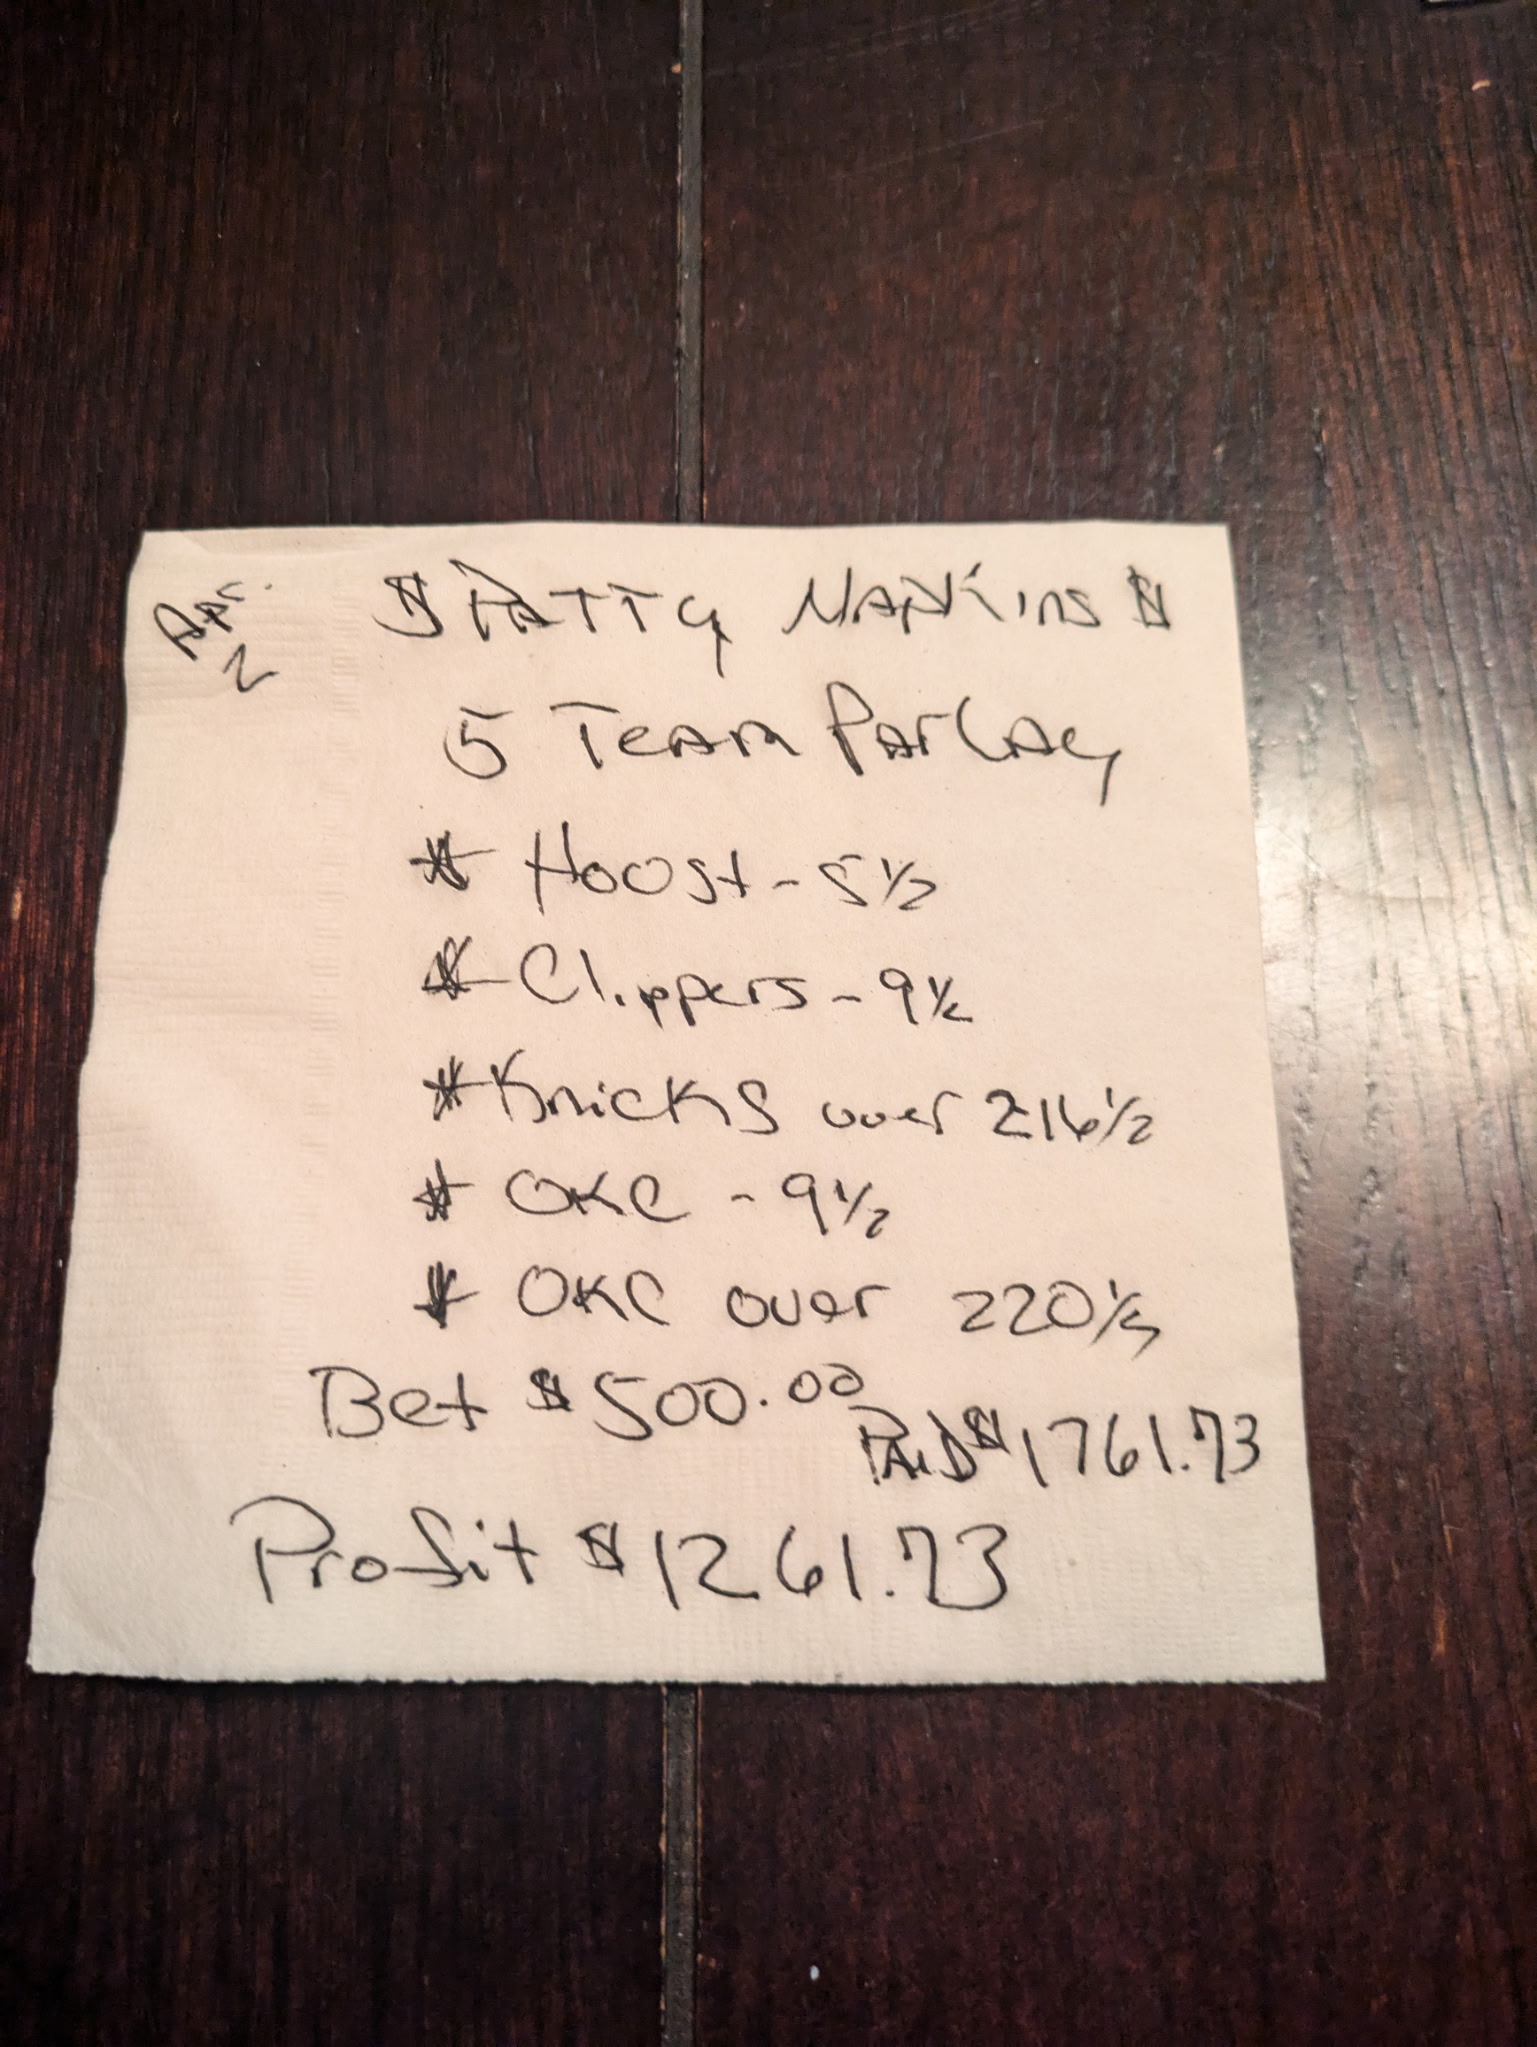 Apr.
2
$ Patty Napkins $
5 Team Parlay
* Hoost - 5 1/2
* Clippers - 9 1/2
* Knicks over 216 1/2
* OKC - 9 1/2
* OKC over 220 1/2
Bet $500.00
PAiD $1761.73
Profit $1261.73